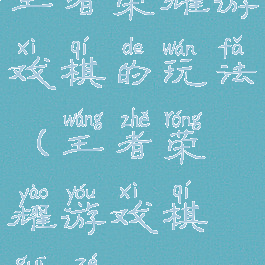 王者荣耀游
xì qí de wán fǎ
戏棋的玩法
wáng zhě róng
(王者荣
yào yóu xì qí
耀游戏棋
guī zé